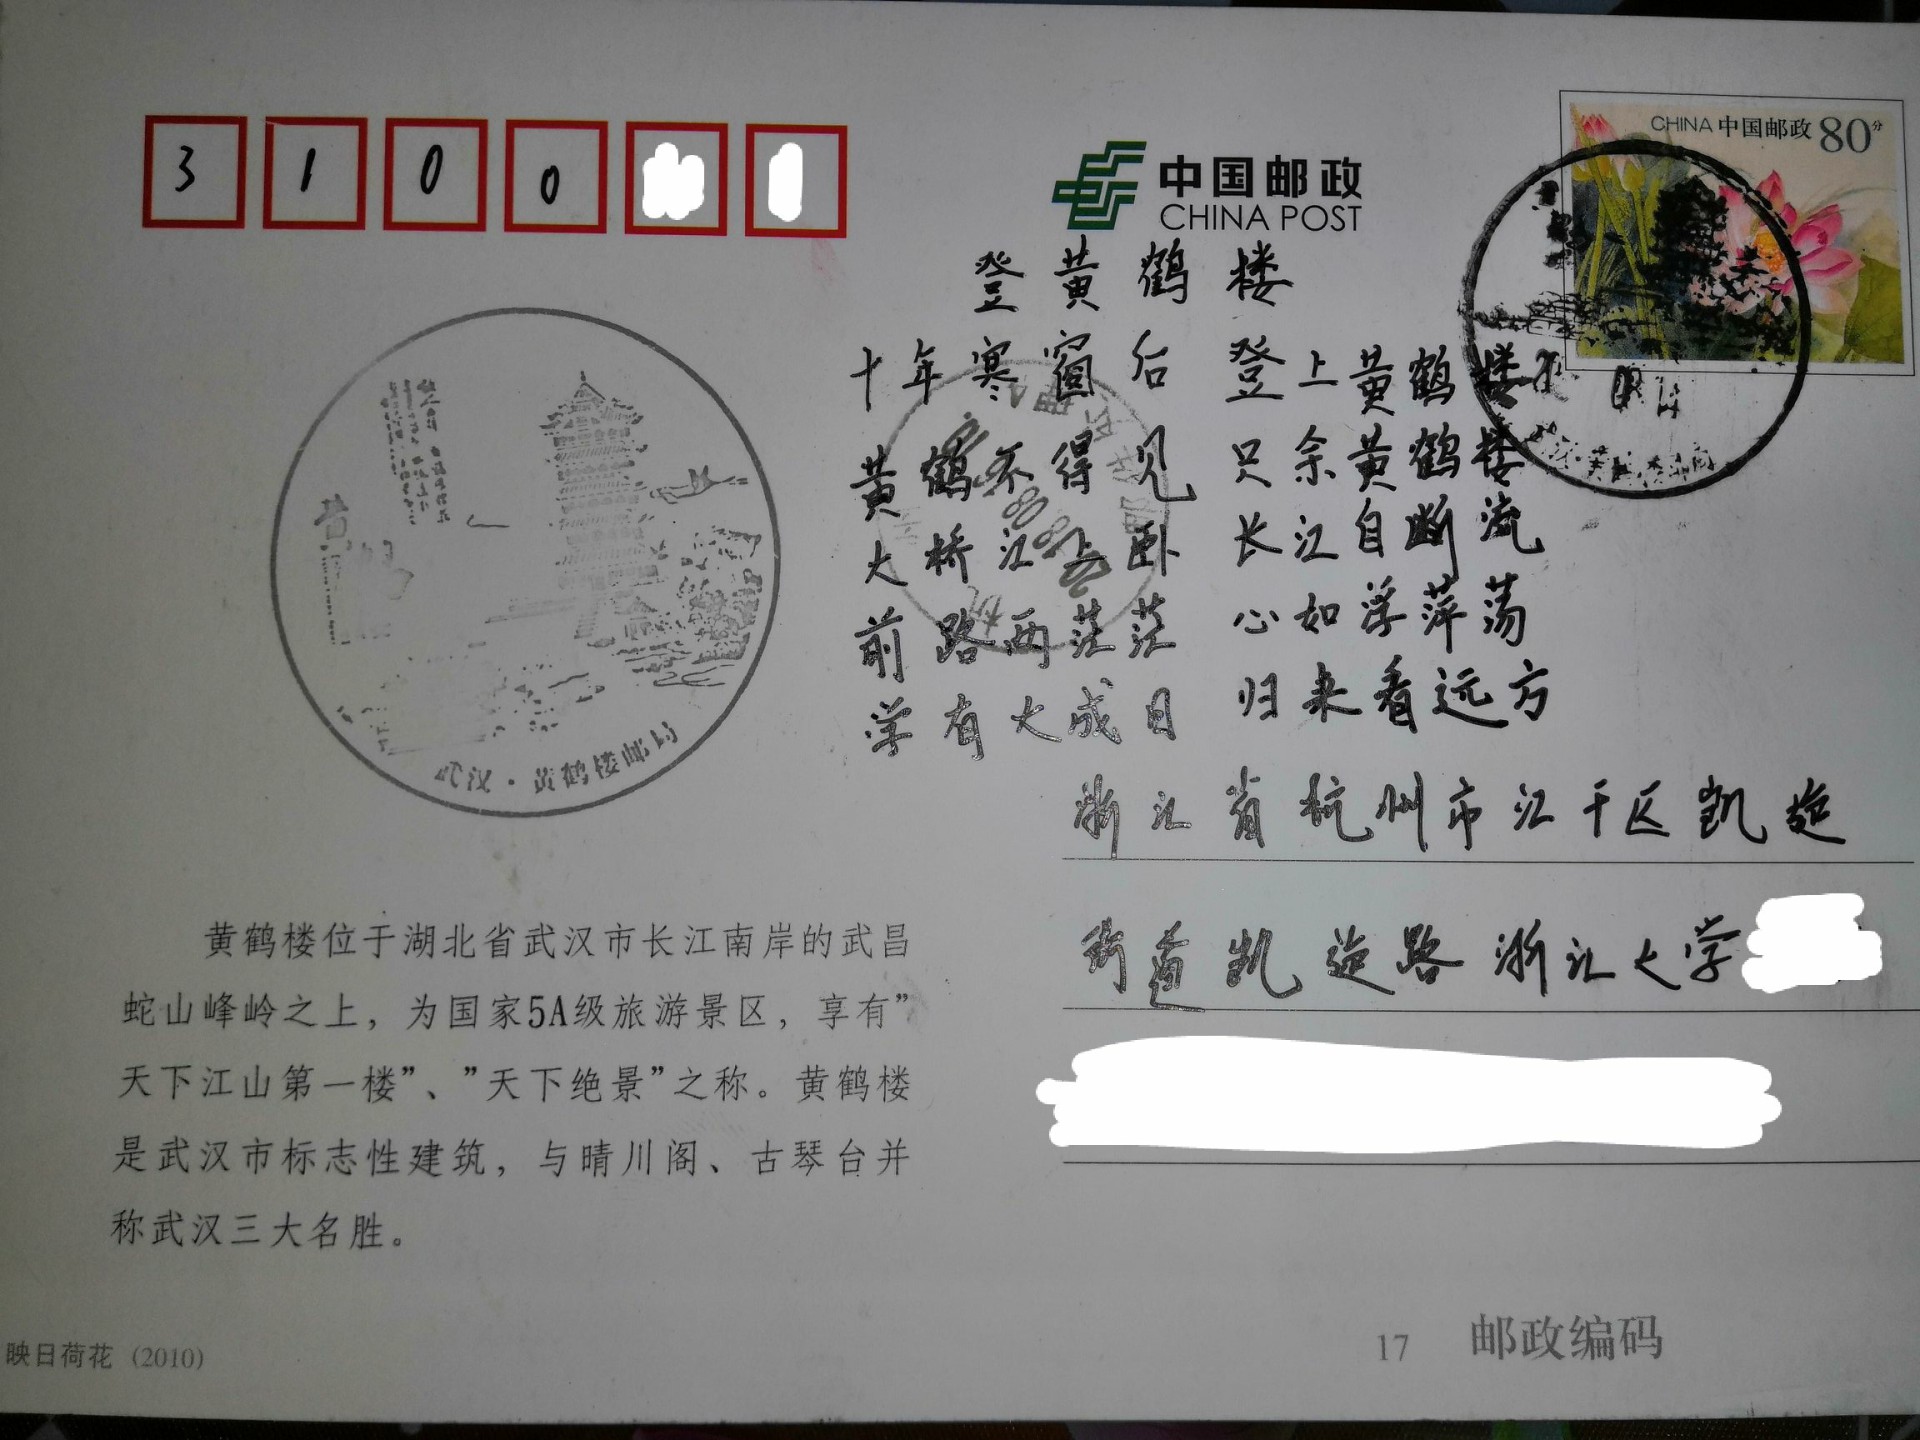 3 1 0 0
中国邮政
CHINA POST
CHINA 中国邮政 80分
登黄鹤楼
十年寒窗后 登上黄鹤楼
黄鹤不得见 只余黄鹤楼
大桥江上卧 长江自断流
前路两茫茫 心如浮萍荡
学有大成日 归来看远方
武汉·黄鹤楼邮局
浙江省杭州市江干区凯旋
街道凯旋路浙江大学
黄鹤楼位于湖北省武汉市长江南岸的武昌
蛇山峰岭之上，为国家5A级旅游景区，享有”
天下江山第一楼”、”天下绝景”之称。黄鹤楼
是武汉市标志性建筑，与晴川阁、古琴台并
称武汉三大名胜。
映日荷花 (2010)
17 邮政编码